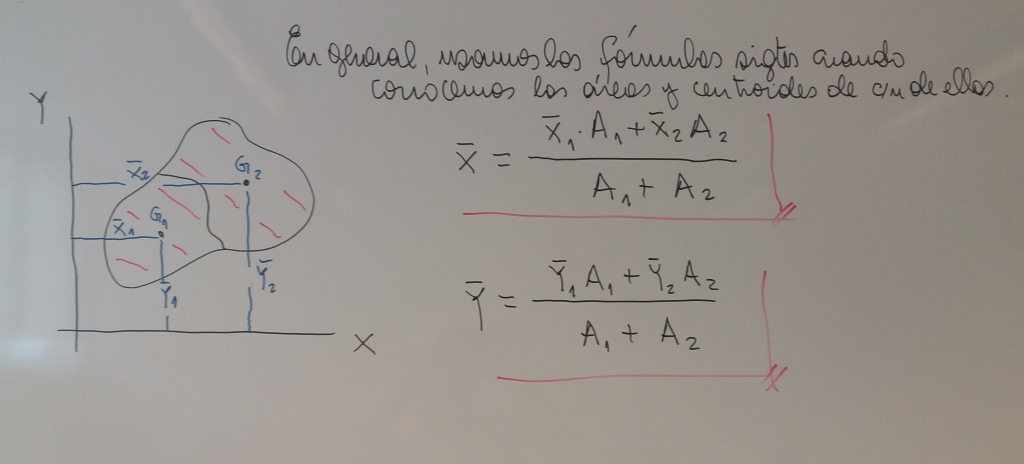 En general, usamos las fórmulas sigtes cuando
conocemos las áreas y centroides de c/u de ellas.
Y
X̄₂
G₂
X̄₁
G₁
Ȳ₁
Ȳ₂
X
X̄ = (X̄₁ · A₁ + X̄₂ A₂) / (A₁ + A₂)
Ȳ = (Ȳ₁ A₁ + Ȳ₂ A₂) / (A₁ + A₂)